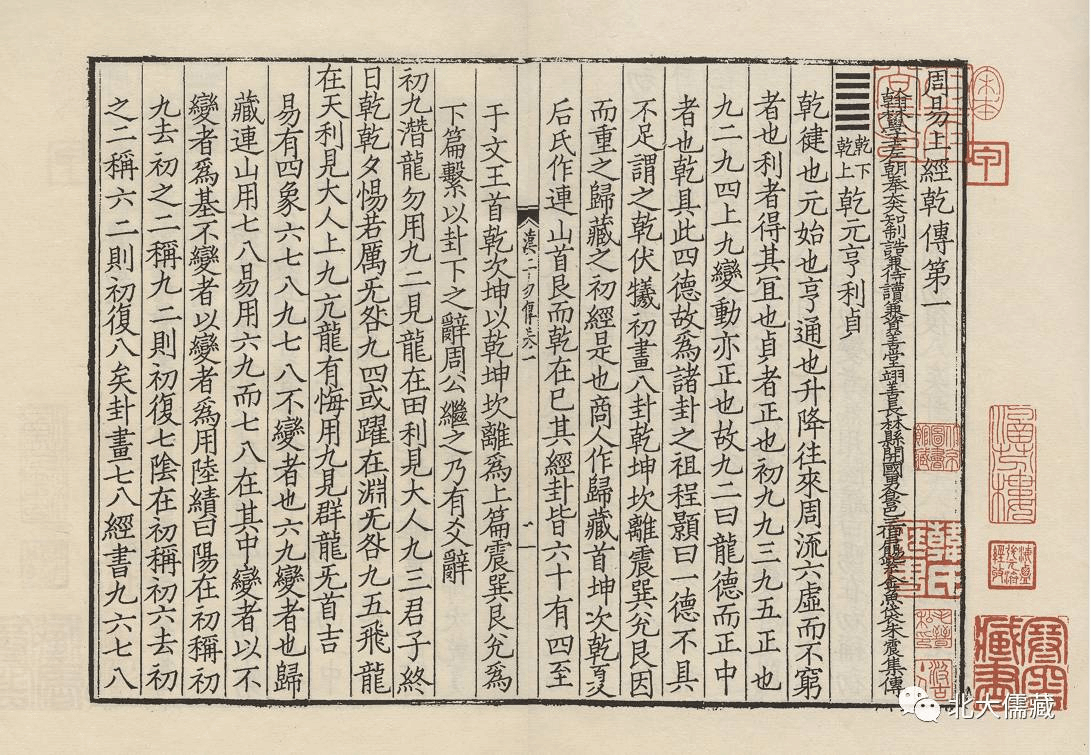 周易上經乾傳第一
翰林學士左朝奉大夫知制誥兼侍讀兼資善堂翊善長林縣開國男食邑三百户賜紫金魚袋朱震集傳
乾下乾上乾元亨利貞
乾健也元始也亨通也升降往來周流六虛而不窮
者也利者得其宜也貞者正也初九九三九五正也
九二九四上九變動亦正也故九二曰龍德而正中
者也乾具此四德故為諸卦之祖程顥曰一德不具
不足謂之乾伏犧初畫八卦乾坤坎離震巽兊艮因
而重之歸藏之初經是也商人作歸藏首坤次乾夏
后氏作連山首艮而乾在巳其經卦皆六十有四至
漢上易傳卷一 一
于文王首乾次坤以乾坤坎離爲上篇震巽艮兊爲
下篇繫以卦下之辭周公繼之乃有爻辭
初九潛龍勿用九二見龍在田利見大人九三君子終
日乾乾夕惕若厲旡咎九四或躍在淵旡咎九五飛龍
在天利見大人上九亢龍有悔用九見群龍旡首吉
易有四象六七八九七八不變者也六九變者也歸
藏連山用七八易用六九而七八在其中變者以不
變者爲基不變者以變者爲用陸績曰陽在初稱初
九去初之二稱九二則初復七陰在初稱初六去初
之二稱六二則初復八矣卦畫七八經書九六七八
北大儒藏